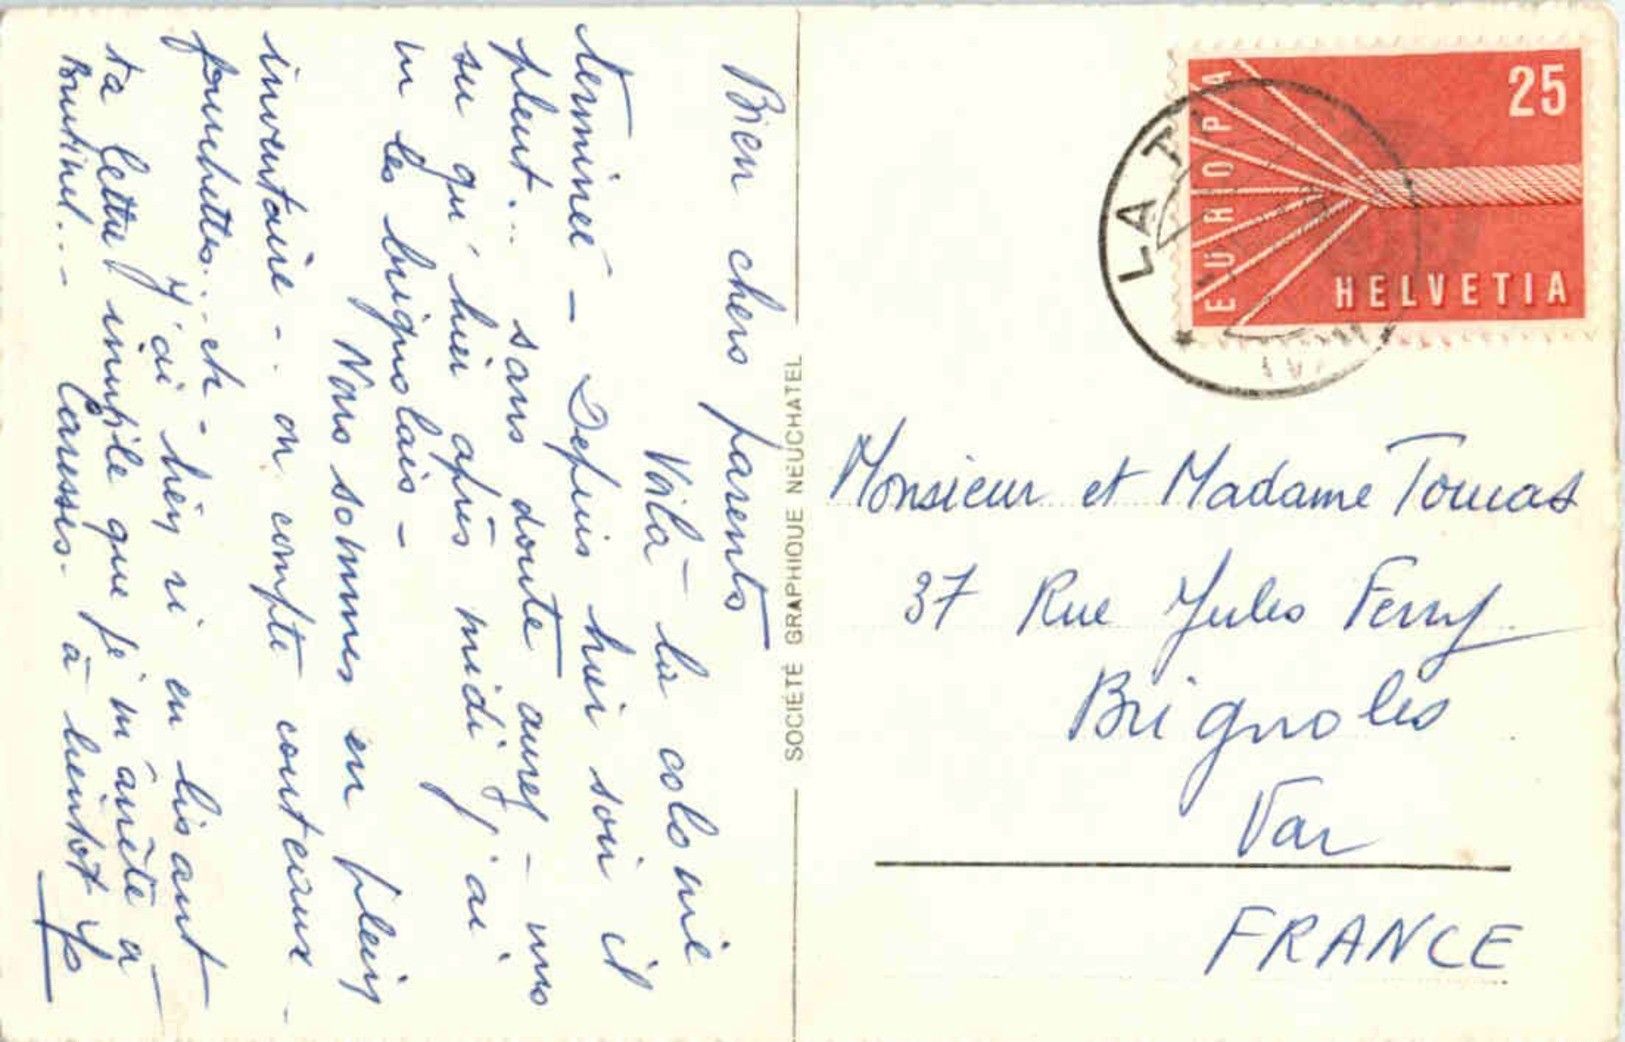 Bien chers parents
Voilà la colonie
terminée - Depuis hier soir il
pleut... sans doute aurez-vous
su qu'hier après midi j'ai
vu les brignolais -
Nous sommes en plein
inventaire - .. on compte couteaux -
fourchettes... etc -
J'ai bien ri en lisant
ta lettre inutile que je m'arrête à
Caresses. à bientôt
SOCIÉTÉ GRAPHIQUE NEUCHATEL
EUROPA
25
HELVETIA
LA
Monsieur et Madame Tomas
37 Rue Jules Ferry
Brignoles
Var
FRANCE